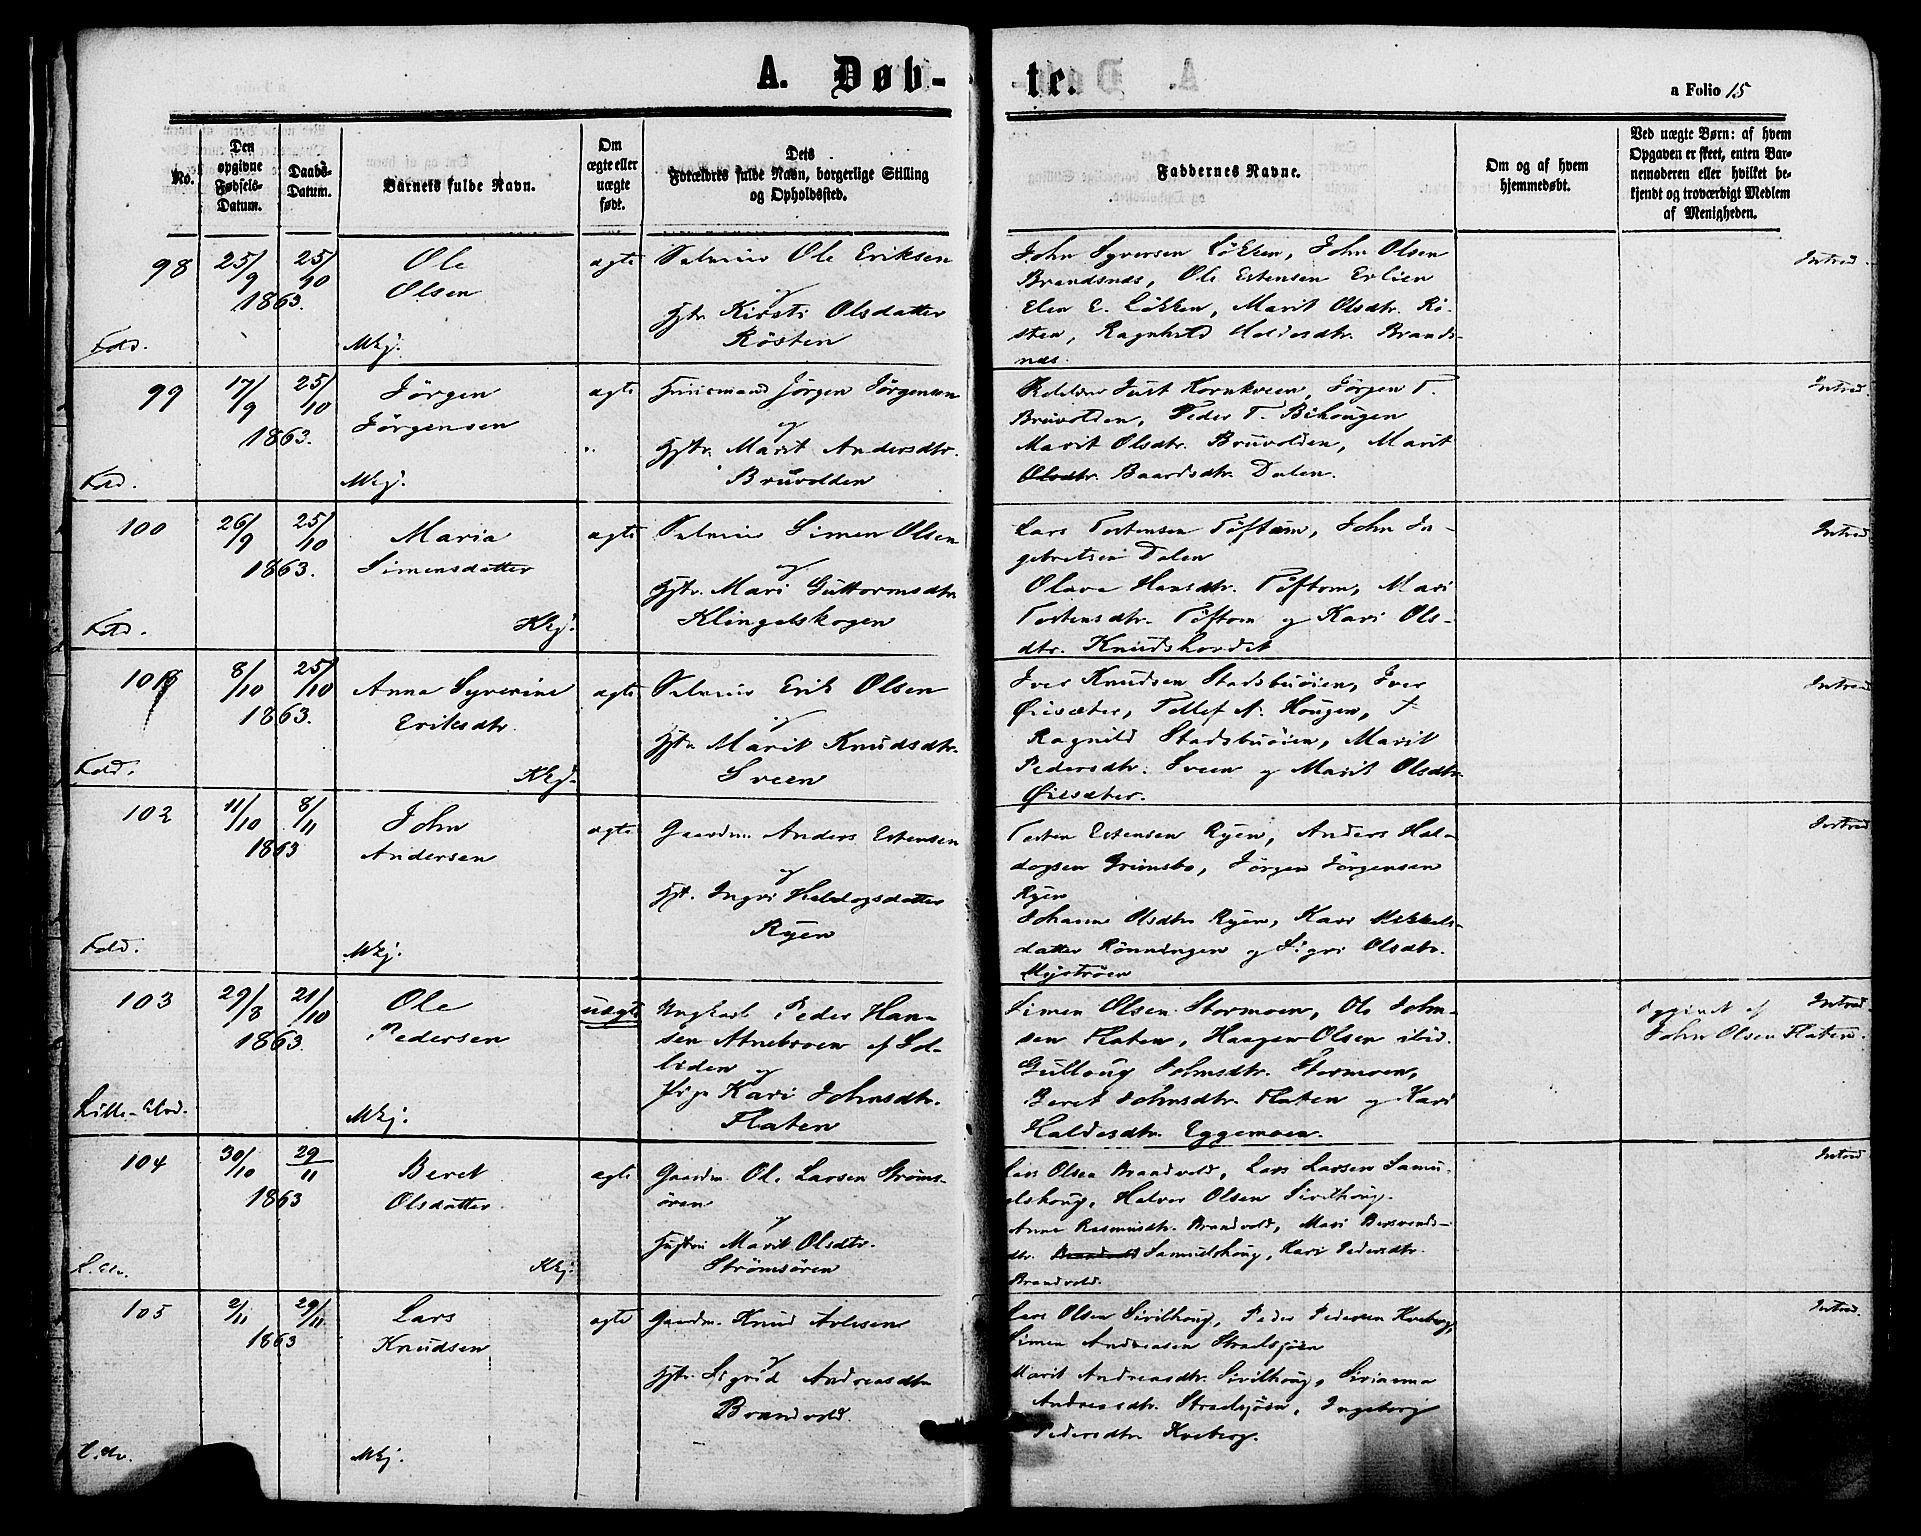 A. Døb-
te.
a Folio 15
No.
Den
opgivne
Fødsels-
Datum.
Daabs-
Datum.
Barnets fulde Navn.
Om
ægte eller
uægte
født.
Dets
Forældres fulde Navn, borgerlige Stilling
og Opholdssted.
Faddernes Navne.
Om og af hvem
hjemmedøbt.
Ved uægte Børn: af hvem
Opgaven er skeet, enten Bar-
nemoderen eller hvilket be-
kjendt og troværdigt Medlem
af Menigheden.
98
25/9
25/10
1863.
Ole
Olsen
Mkj.
Fold.
ægte
Selveier Ole Eriksen
og
Hstr. Kirsti Olsdatter
Røsten
John Syversen Løkken, John Olsen
Brandsnes, Ole Estensen Erlien
Elen E. Løkken, Marit Olsdtr. Rø-
sten, Ragnhild Haldosdtr. Brands-
nes.
Introd.
99
17/9
25/10
1863.
Jørgen
Jørgensen
Mkj.
Fold.
ægte
Huusmand Jørgen Jørgensen
og
Hstr. Marit Andersdtr.
Bruvolden
Just Kornkveen, Jørgen T.
Bruvolden, Peder T. Bihougen
Marit Olsdtr. Bruvolden, Marit
Olsdtr. Baardsdtr. Dalen.
Introd.
100
26/9
25/10
1863.
Maria
Simensdatter
Kkj.
Fold.
ægte
Selveier Simen Olsen
og
Hstr. Mari Guttormsdtr.
Klingelskogen
Lars Tostensen Tøftom, John In-
gebretsen Dalen
Olava Hansdtr. Tøftom, Mari
Tostensdtr. Tøftom og Kari Ols-
dtr. Knudshovdet
Introd.
101
8/10
25/10
1863.
Anna Syverine
Eriksdtr.
Kkj.
Fold.
ægte
Selveier Erik Olsen
og
Hstr. Marit Knudsdtr.
Sveen
Iver Knudsen Stadsbuøien, Iver
Øiesæter, Tollef A. Hougen,
Ragnild Stadsbuøien, Marit
Pedersdtr. Sveen og Marit Olsdtr.
Øiesæter.
Introd.
102
11/10
8/11
1863
John
Andersen
Mkj.
Fold.
ægte
Gaardm. Anders Estensen
og
Hst. Ingri Haldogsdatter
Ryen
Tosten Estensen Ryen, Anders Hal-
dogsen Grimsbo, Jørgen Jørgensen
Ryen
Johanne Olsdtr. Ryen, Kari Mikkels-
datter Rønningen og Sigri Olsdtr.
Mystrøen
Introd.
103
29/8
21/10
1863.
Ole
Pedersen
Mkj.
Lille-Elvd.
uægte
Ungkarl Peder Han-
sen Atnebroen af Sol-
liden og
Pige Kari Johnsdtr.
Flaten
Simen Olsen Stormoen, Ole John-
sen Flaten, Haagen Olsen ibid.
Gulloug Johnsdtr. Stormoen,
Beret Johnsdtr. Flaten og Kari
Haldosdtr. Eggemoen.
Opgivet af
John Olsen Flaten.
Introd.
104
30/10
29/11
1863
Beret
Olsdatter
Kkj.
L.Elv.
ægte
Gaardm. Ole Larsen Strøms-
øren
og
Hustru Marit Olsdtr.
Strømsøren
Lars Olsen Brandvold, Lars Larsen Samu-
elshoug, Halvor Olsen Sivilhoug.
Anne Rasmusdtr. Brandvold, Mari Bersvends-
dtr. Brandvold Samuelshoug, Kari Pedersdtr.
Brandvold.
Introd
105
2/11
29/11
1863
Lars
Knudsen
Mkj.
L.Elv.
ægte
Gaardm. Knud Arlesen
og
Hstr. Sigrid Andreasdtr.
Brandvold.
Lars Olsen Sivilhoug, Peder Pedersen Kveberg,
Simen Andreasen Stradsjøen
Marit Andreasdtr. Sivilhoug, Sirianna
Andreasdtr. Stradsjøen, Ingeborg
Pedersdtr. Kveberg.
Introd.